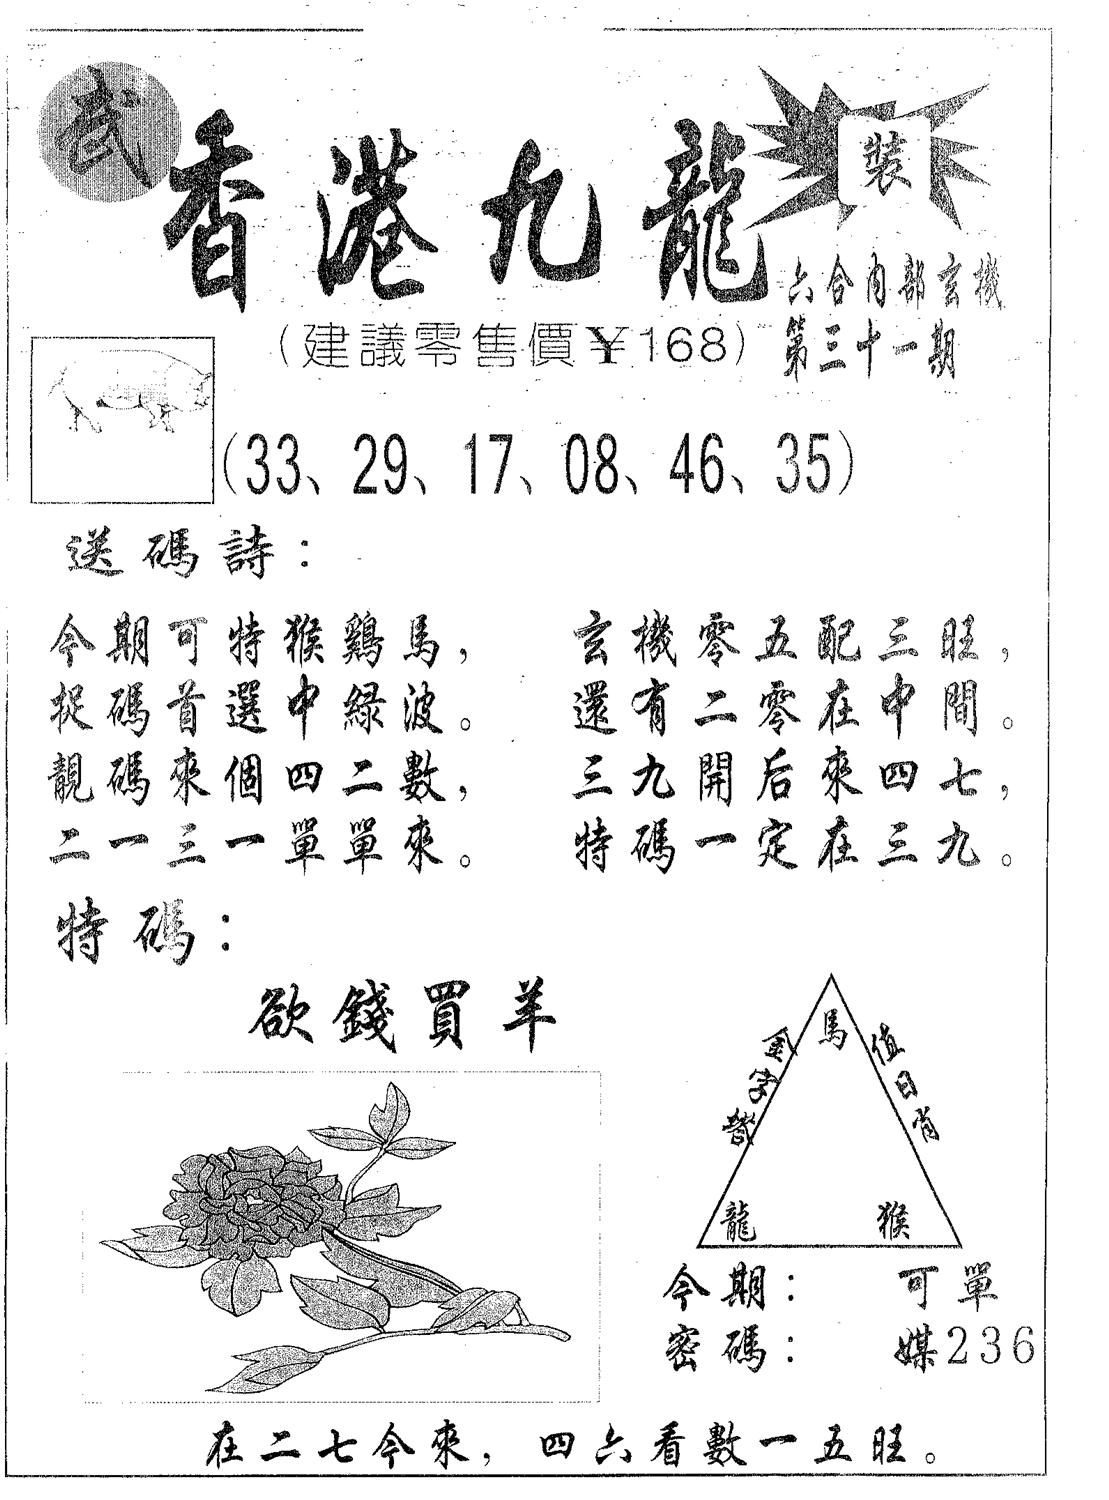 武
香港九龍
裝
六合內部玄機
第三十一期
(建議零售價¥168)
(33、29、17、08、46、35)
送碼詩:
今期可特猴鷄馬,
捉碼首選中緑波。
靚碼來個四二數,
二一三一單單來。
玄機零五配三旺,
還有二零在中間。
三九開后來四七,
特碼一定在三九。
特碼:
欲錢買羊
金字塔
值日肖
馬
龍 猴
今期: 可單
密碼: 媒236
在二七今來,四六看數一五旺。